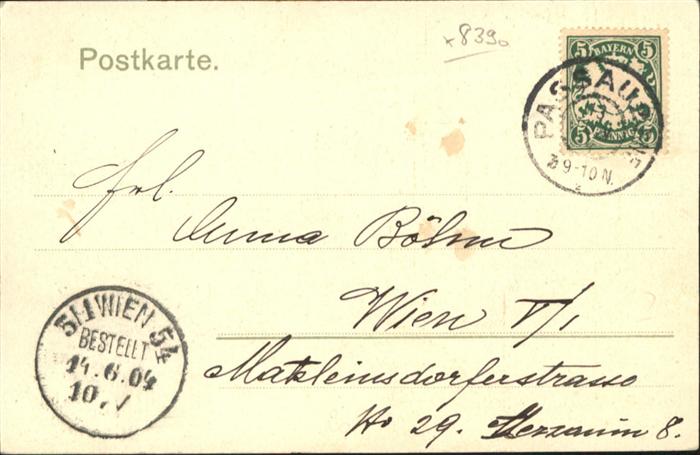 x8390
Postkarte.
5 BAYERN 5
5 PFENNIG 5
PASSAU
9-10 N.
Frl.
Anna Böhm
Wien V/1
Matzleinsdorferstrasse
No 29. Mezzanin 8.
5/1 WIEN 54
BESTELLT
14.6.04
10.V